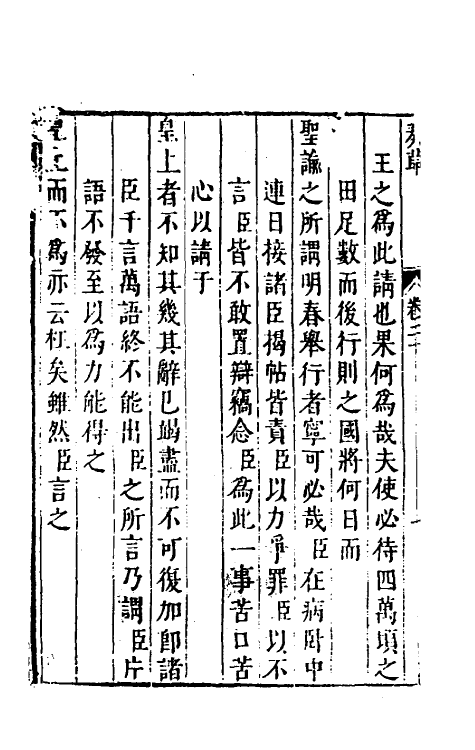 奏草
卷二十
王之為此請也果何為哉夫使必待四萬頃之
田足數而後行則之國將何日而
聖諭之所謂明春舉行者寧可必哉臣在病卧中
連日接諸臣揭帖皆責臣以力爭罪臣以不
言臣皆不敢置辯竊念臣為此一事苦口苦
心以請于
皇上者不知其幾其辭已竭盡而不可復加即諸
臣千言萬語終不能出臣之所言乃謂臣片
語不發至以為力能得之
而不為亦云枉矣雖然臣言之